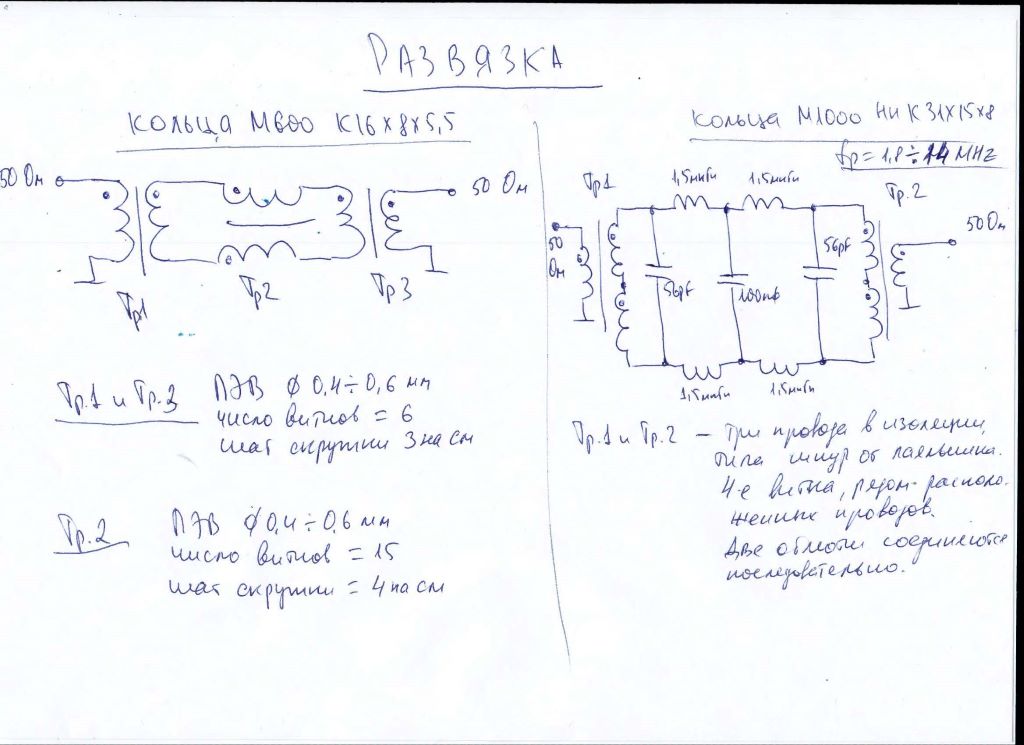 РАЗВЯЗКА
КОЛЬЦА М600 К16×8×5,5
50 Ом
50 Ом
Тр1
Тр2
Тр3
Тр.1 и Тр.3 ПЭВ ϕ 0,4÷0,6 мм
число витков = 6
шаг скрутки 3 на см
Тр.2 ПЭВ ϕ 0,4÷0,6 мм
число витков = 15
шаг скрутки = 4 на см
КОЛЬЦА М1000 НИ К31×15×8
fр = 1,8÷14 MHz
Тр1
1,5мкГн
1,5мкГн
Тр.2
50
Ом
50Ом
56pF
100пф
56pF
1,5мкГн
1,5мкГн
Тр.1 и Тр.2 – Три провода в изоляции,
типа шнур от паяльника.
4-е витка, рядом располо-
женных проводов.
Две обмотки соединяются
последовательно.